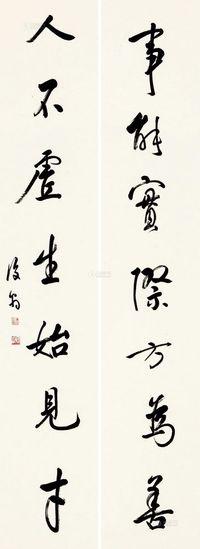 事能實際方為善
人不虛生始見才